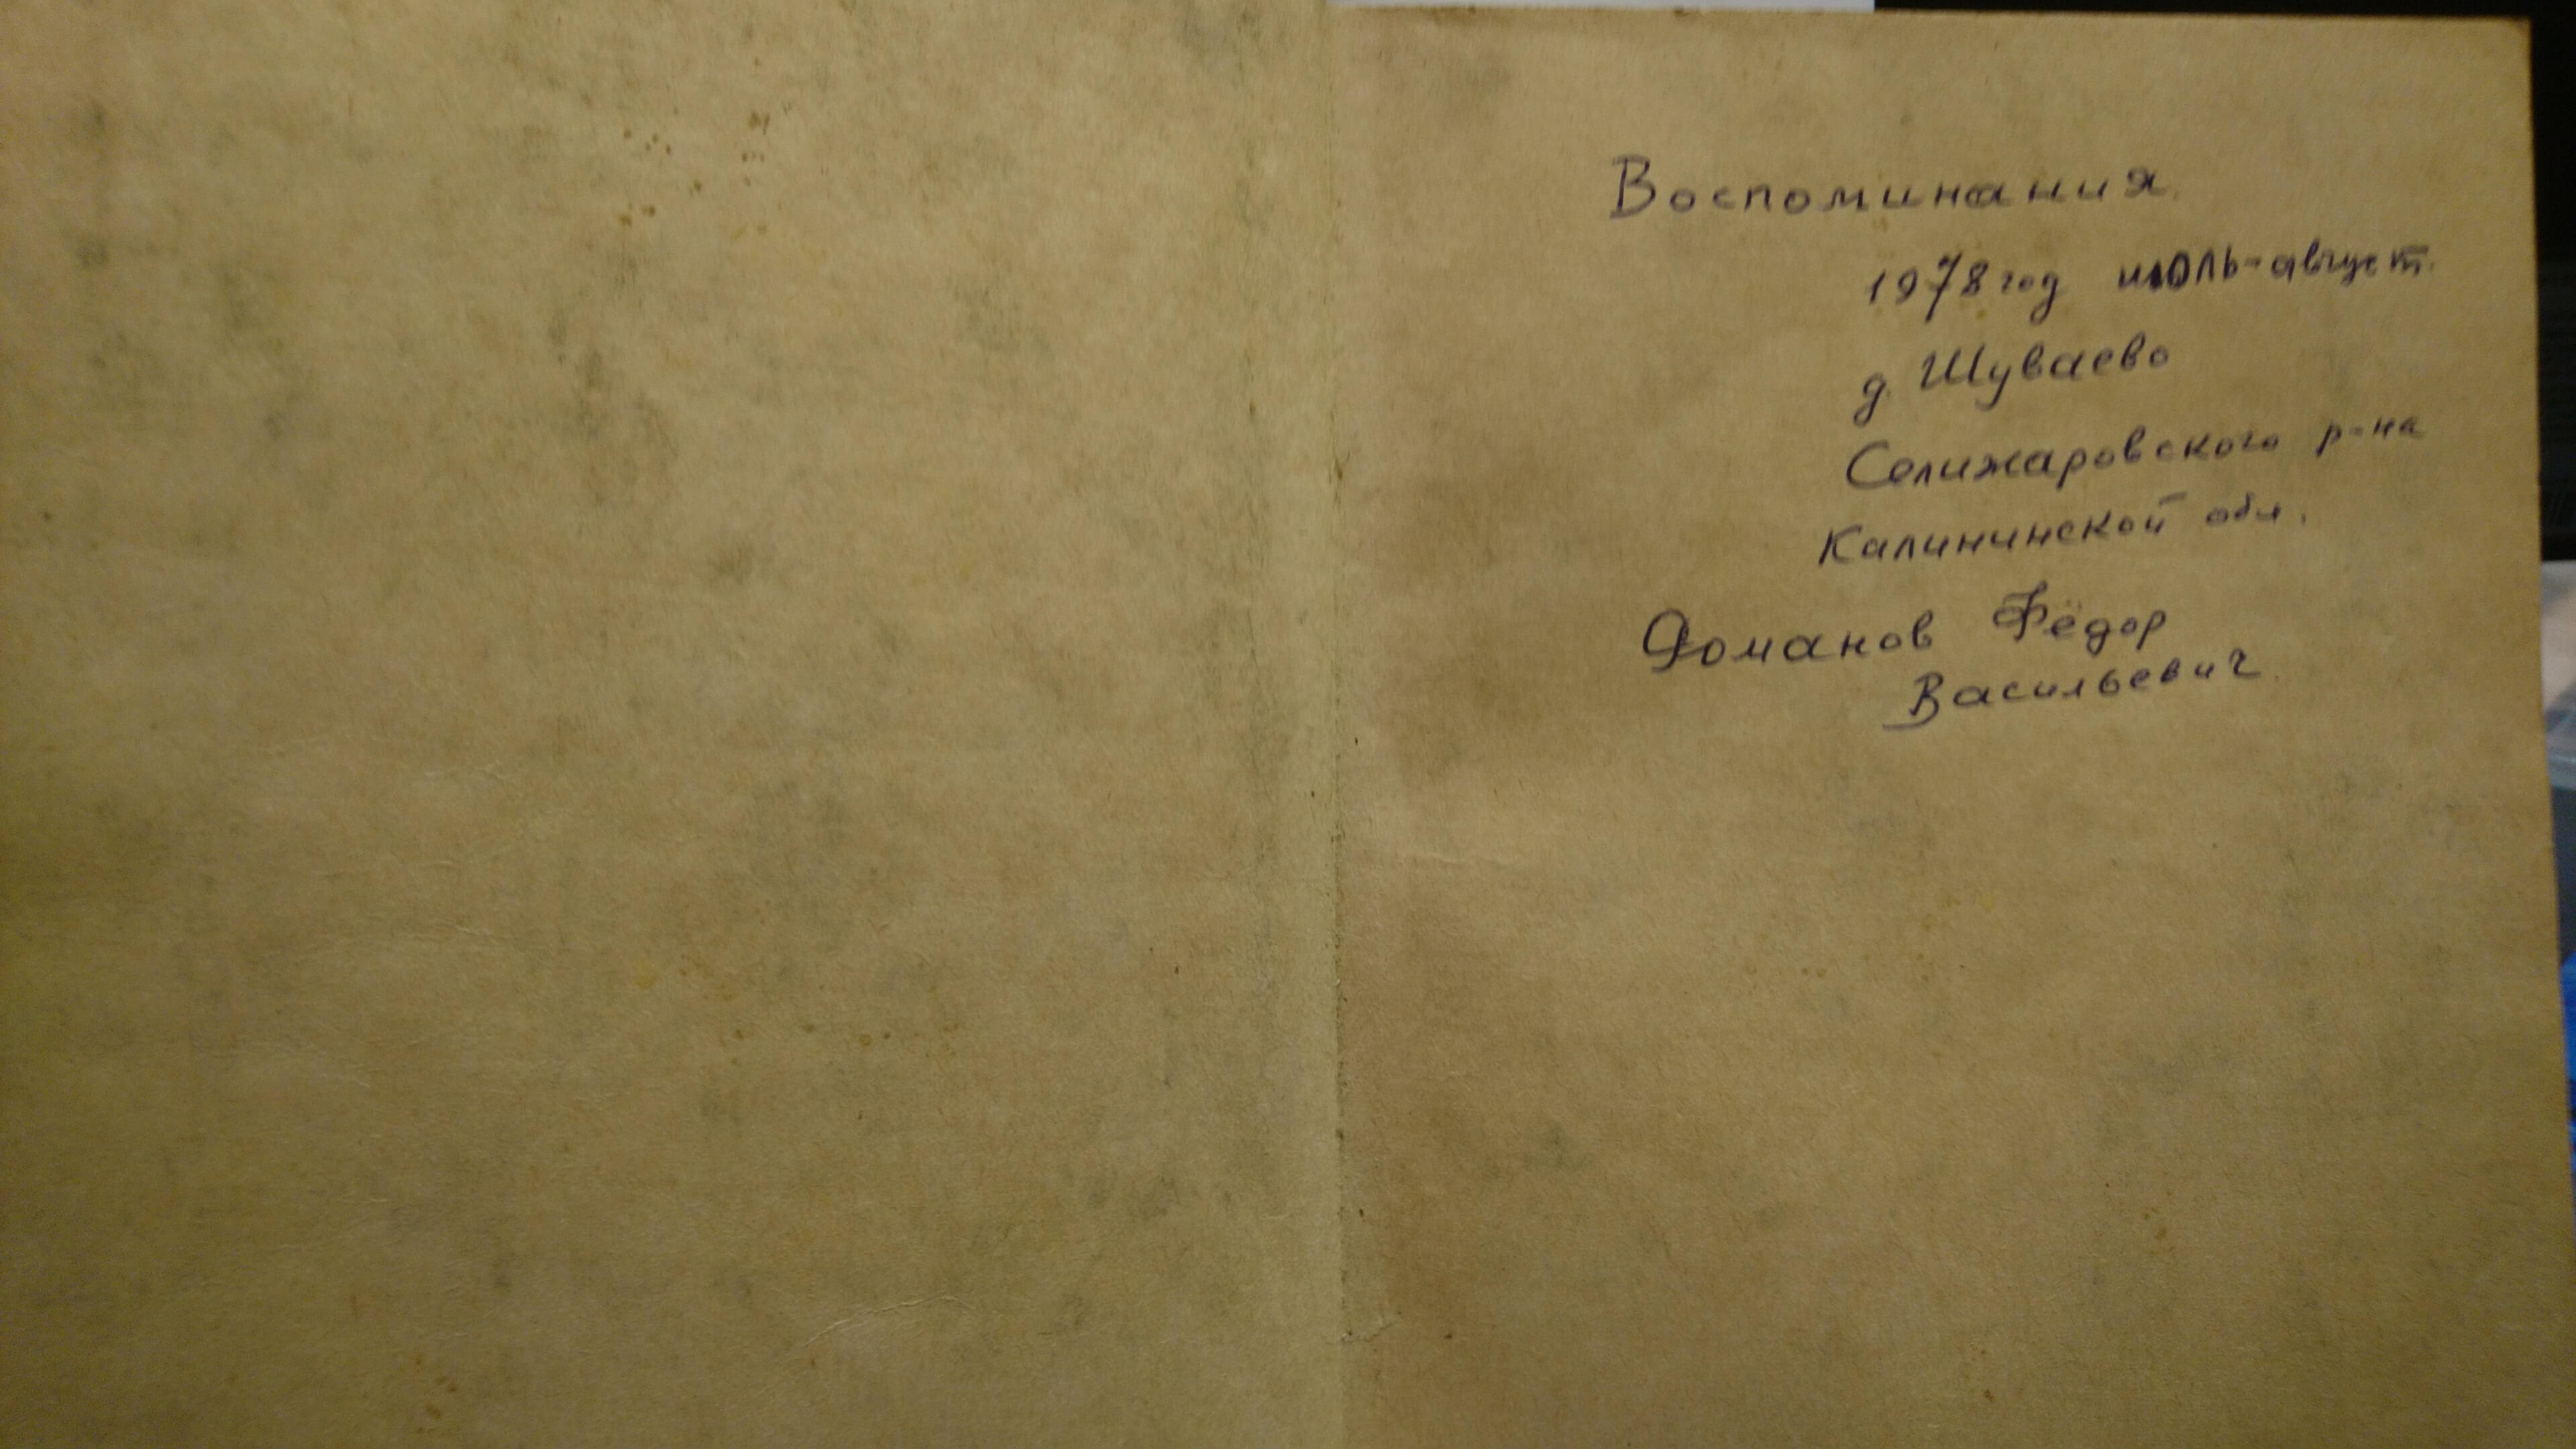 Воспоминания.
1978 год июль-август.
д. Шуваево
Селижаровского р-на
Калининской обл.
Доманов Фёдор
Васильевич.